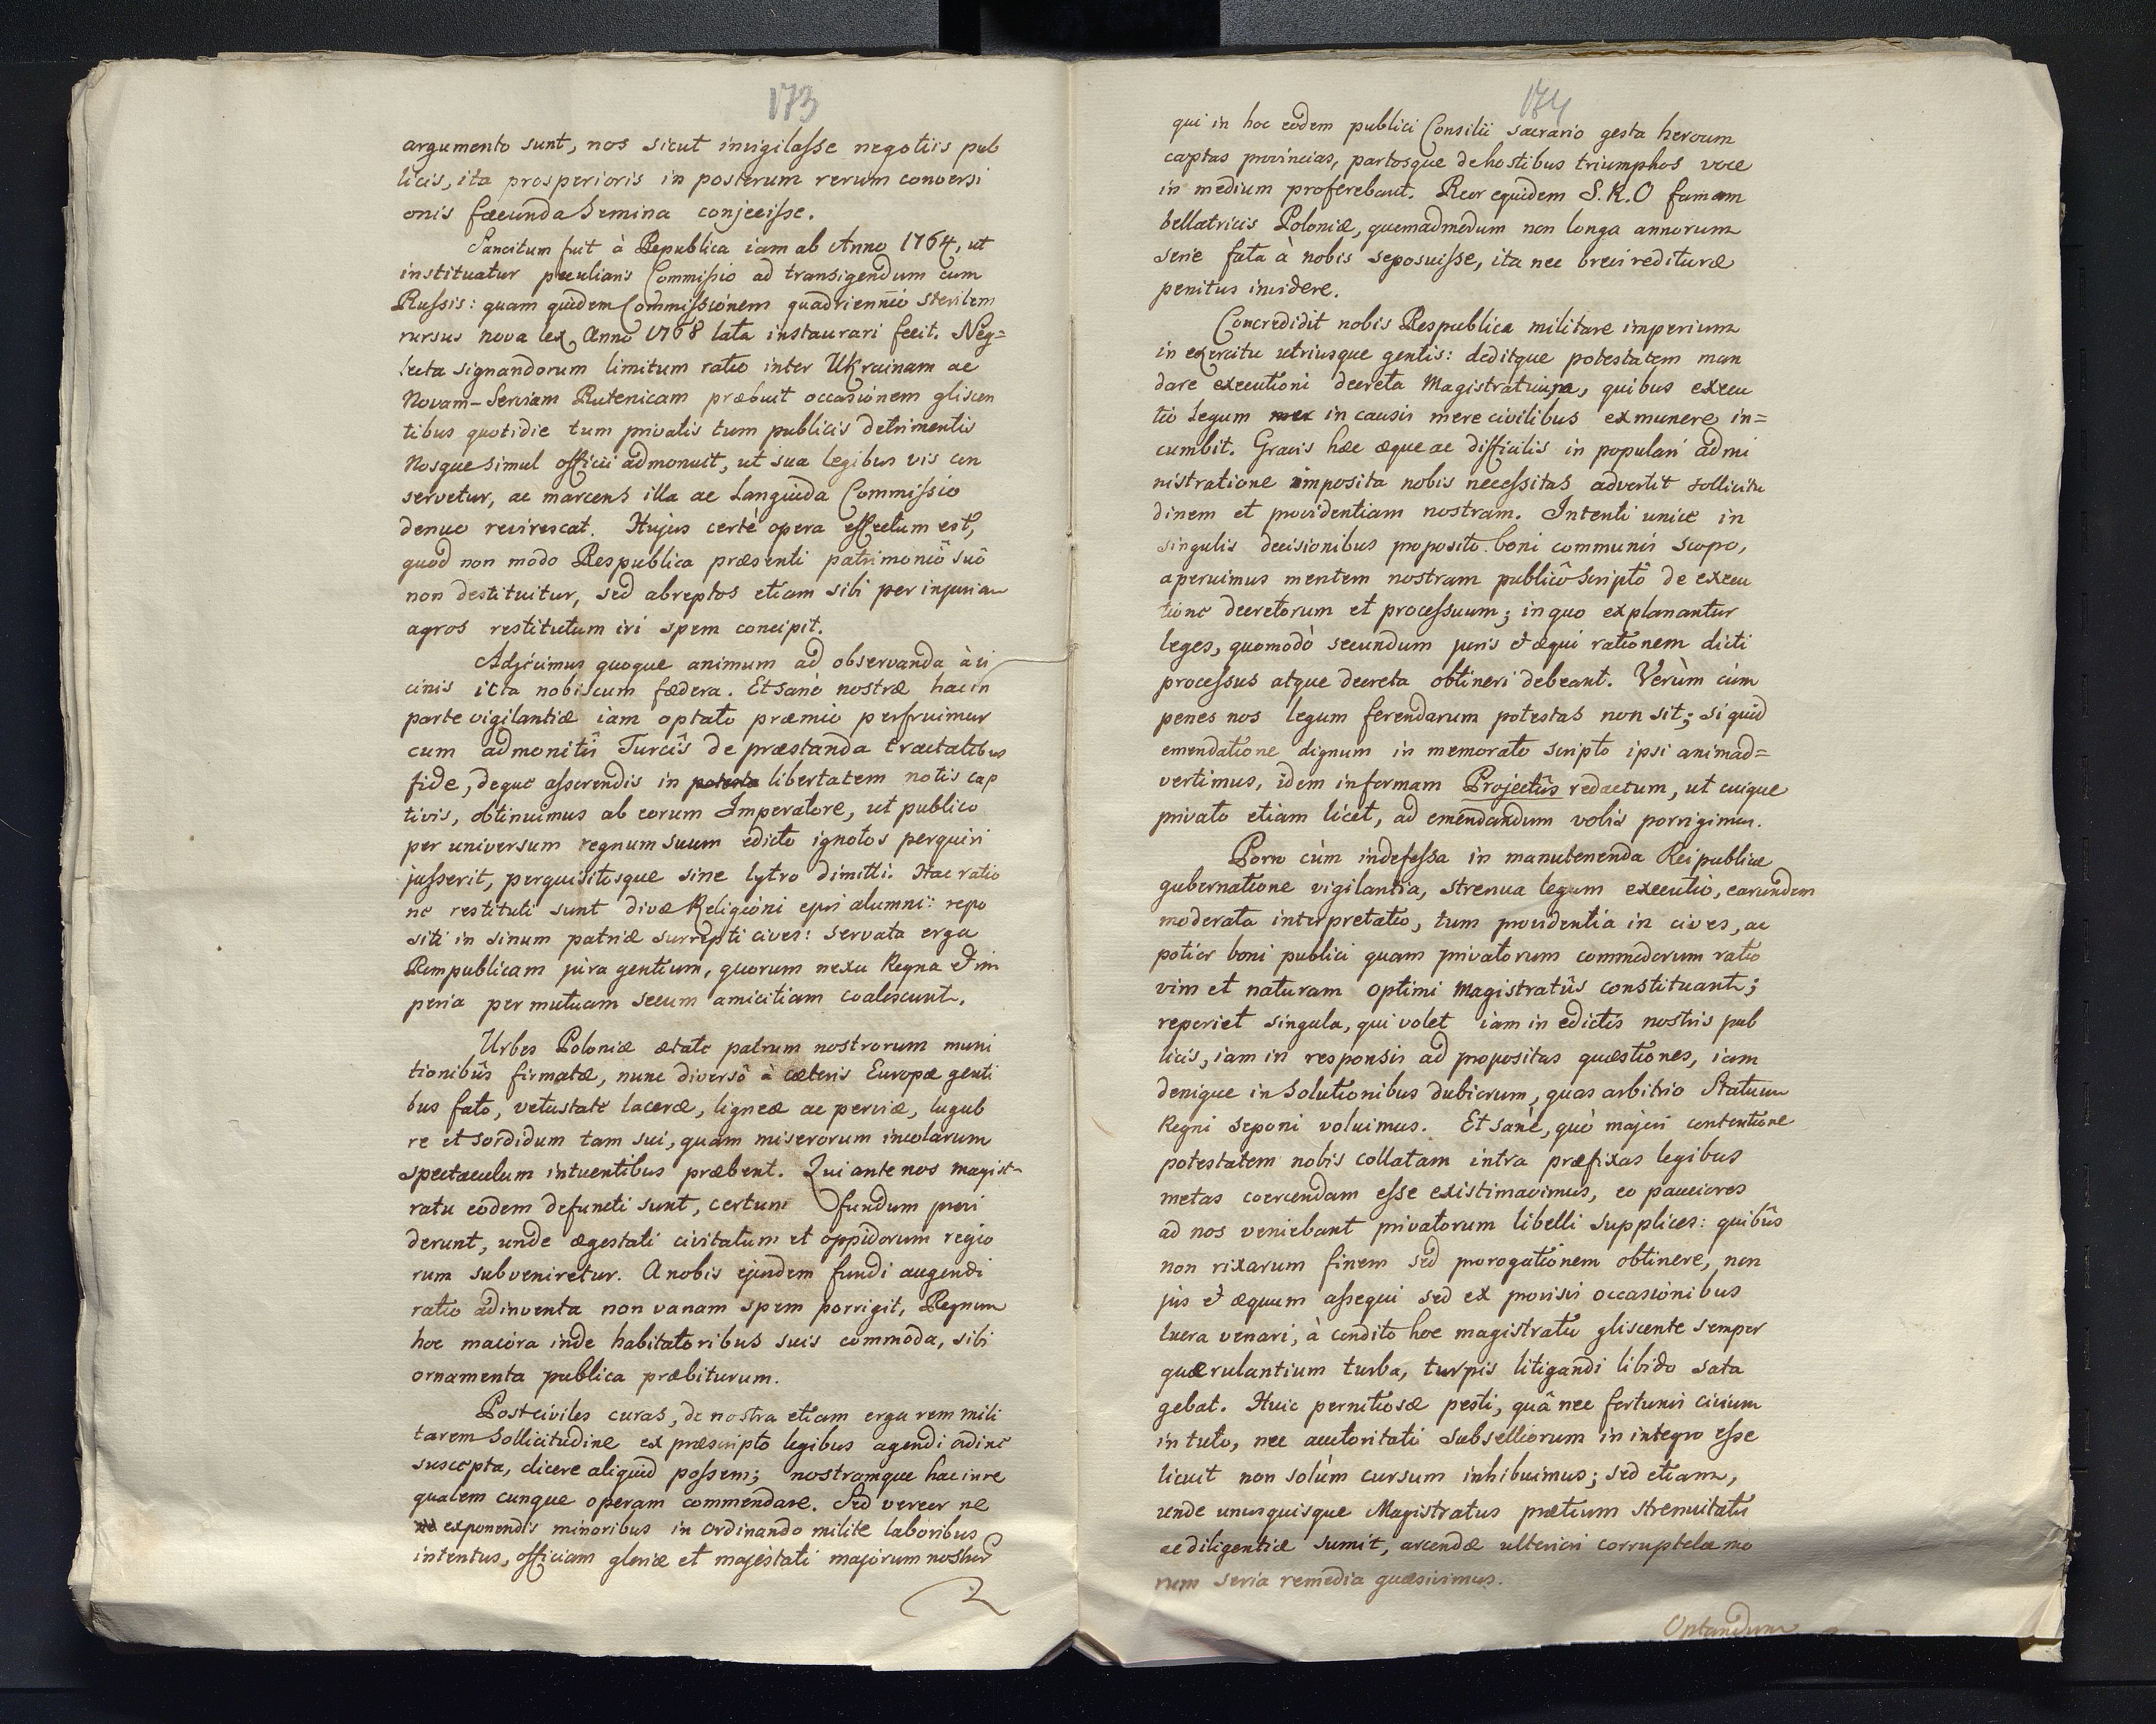 173
argumento sunt, nos sicut invigilasse negotiis pub
licis, ita prosperioris in posterum rerum conversi
onis fæcunda Semina conjecisse.
Sancitum fuit à Republica iam ab Anno 1764, ut
instituatur peculiaris Commissio ad transigendum cum
Russis: quam quidem Commissionem quadriennio sterilem
rursus nova lex Anno 1768 lata instaurari fecit. Neg=
lecta signandorum limitum ratio inter Ukrainam ac
Novam-Serviam Rutenicam præbuit occasionem gliscen
tibus quotidie tum privatis tum publicis detrimentis
Nosque simul officii admonuit, ut sua legibus vis con
servetur, ac marcens illa ac Languida Commissio
denuo revirescat. Hujus certè opera effectum est,
quod non modo Respublica præsenti patrimoniô suô
non destituitur, sed abreptos etiam sibi per injuriam
agros restitutum iri spem concipit.
Adjicimus quoque animum ad observanda à vi
cinis icta nobiscum fædera. Et sanè nostræ hac in
parte vigilantiæ iam optato præmio perfruimur
cum admonitîs Turcîs de præstanda tractatibus
fide, deque asserendis in libertatem notis cap
tivis, obtinuimus ab eorum Imperatore, ut publico
per universum regnum suum edicto ignotos perquiri
jusserit, perquisitosque sine lytro dimitti. Hac ratio
ne restituti sunt divæ Religioni ejus alumni: repo
siti in sinum patriæ surrepti cives: servata erga
Rempublicam jura gentium, quorum nexu Regna et im
peria per mutuam secum amicitiam coalescunt.
Urbes Poloniæ ætate patrum nostrorum muni
tionibûs firmatæ, nunc diversô à cæteris Europæ genti
bus fato, vetustate laceræ, ligneæ ac perviæ, lugub
re et sordidum tam sui, quam miserorum incolarum
spectaculum intuentibus præbent. Qui ante nos magist-
ratu eodem defuncti sunt, certum fundum provi
derunt, unde ægestati civitatum et oppidorum regio
rum subveniretur. A nobis ejusdem fundi augendi
ratio adinventa non vanam spem porrigit, Regnum
hoc maiora inde habitatoribus suis commoda, sibi
ornamenta publica præbiturum.
Post civiles curas, de nostra etiam erga rem mili
tarem Sollicitudine ex præscripto legibus agendi ordine
suscepta, dicere aliquid possem; nostramque hac in re
qualem cunque operam commendare. Sed vereor ne
exponendis minoribus in ordinando milite laboribus
intentus, officiam gloriæ et majestati majorum nostror
174
qui in hoc eodem publici Consilii sacrario gesta heroum
captas provincias, partosque de hostibus triumphos voce
in medium proferebant. Reor equidem S.R.O famam
bellatricis Poloniæ, quemadmodum non longa annorum
serie fata à nobis seposuisse, ita nec brevi redituræ
penitus invidere.
Concredidit nobis Respublica militare imperium
in exercitu utriusque gentis: deditque potestatem man
dare executioni decreta Magistratuum, quibus execu
tio Legum in causis mere civilibus ex munere in=
cumbit. Gravis hæc æque ac difficilis in populari admi
nistratione imposita nobis necessitas advertit sollicitu
dinem et providentiam nostram. Intenti unice in
singulis decisionibus proposito boni communis scopo,
aperuimus mentem nostram publicô Scriptô de execu
tione decretorum et processuum; in quo explanantur
leges, quomodò secundum juris et æqui rationem dicti
processus atque decreta obtineri debeant. Verùm cùm
penes nos legum ferendarum potestas non sit; si quid
emendatione dignum in memorato scripto ipsi animad=
vertimus, idem in formam Projectûs redactum, ut cuique
privato etiam licet, ad emendandum vobis porrigimus.
Porro cùm indefessa in manutenenda Reipublicæ
gubernatione vigilantia, strenua legum executio, earundem
moderata interpretatio, tum providentia in cives, ac
potior boni publici quam privatorum commodorum ratio
vim et naturam optimi Magistratûs constituant;
reperiet singula, qui volet iam in edictis nostris pub
licis, iam in responsis ad propositas quæstiones, iam
denique in Solutionibus dubiorum, quas arbitrio Statuum
Regni seponi voluimus. Et sanè, quò majori contentione
potestatem nobis collatam intra præfixas legibus
metas coercendam esse existimavimus, eo pauciores
ad nos veniebant privatorum libelli supplices: quibûs
non rixarum finem sed prorogationem obtinere, non
jus et æquum assequi sed ex provisis occasionibus
lucra venari, à condito hoc magistratu gliscente semper
quærulantium turba, turpis litigandi libido sata
gebat. Huic pernitiosæ pesti, quâ nec fortunis civium
in tuto, nec auctoritati Subselliorum in integro esse
licuit non solùm cursum inhibuimus; sed etiam,
unde unusquisque Magistratus prætium strenuitatis
ac diligentiæ sumit, arcendæ ulteriori corruptelæ mo
rum seria remedia quæsivimus.
Optandum